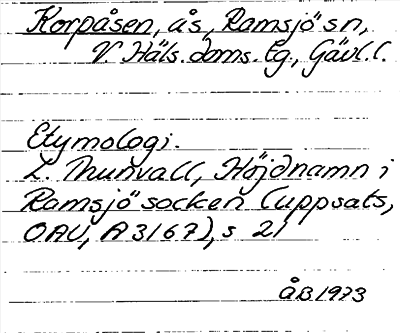 Korpåsen, ås, Ramsjö sn,
V. Häls. doms. lg, Gävl. l.
Etymologi.
L. Thunvall, Höjdnamn i
Ramsjö socken (uppsats,
OAU, A 3167), s 21
ÅB 1973